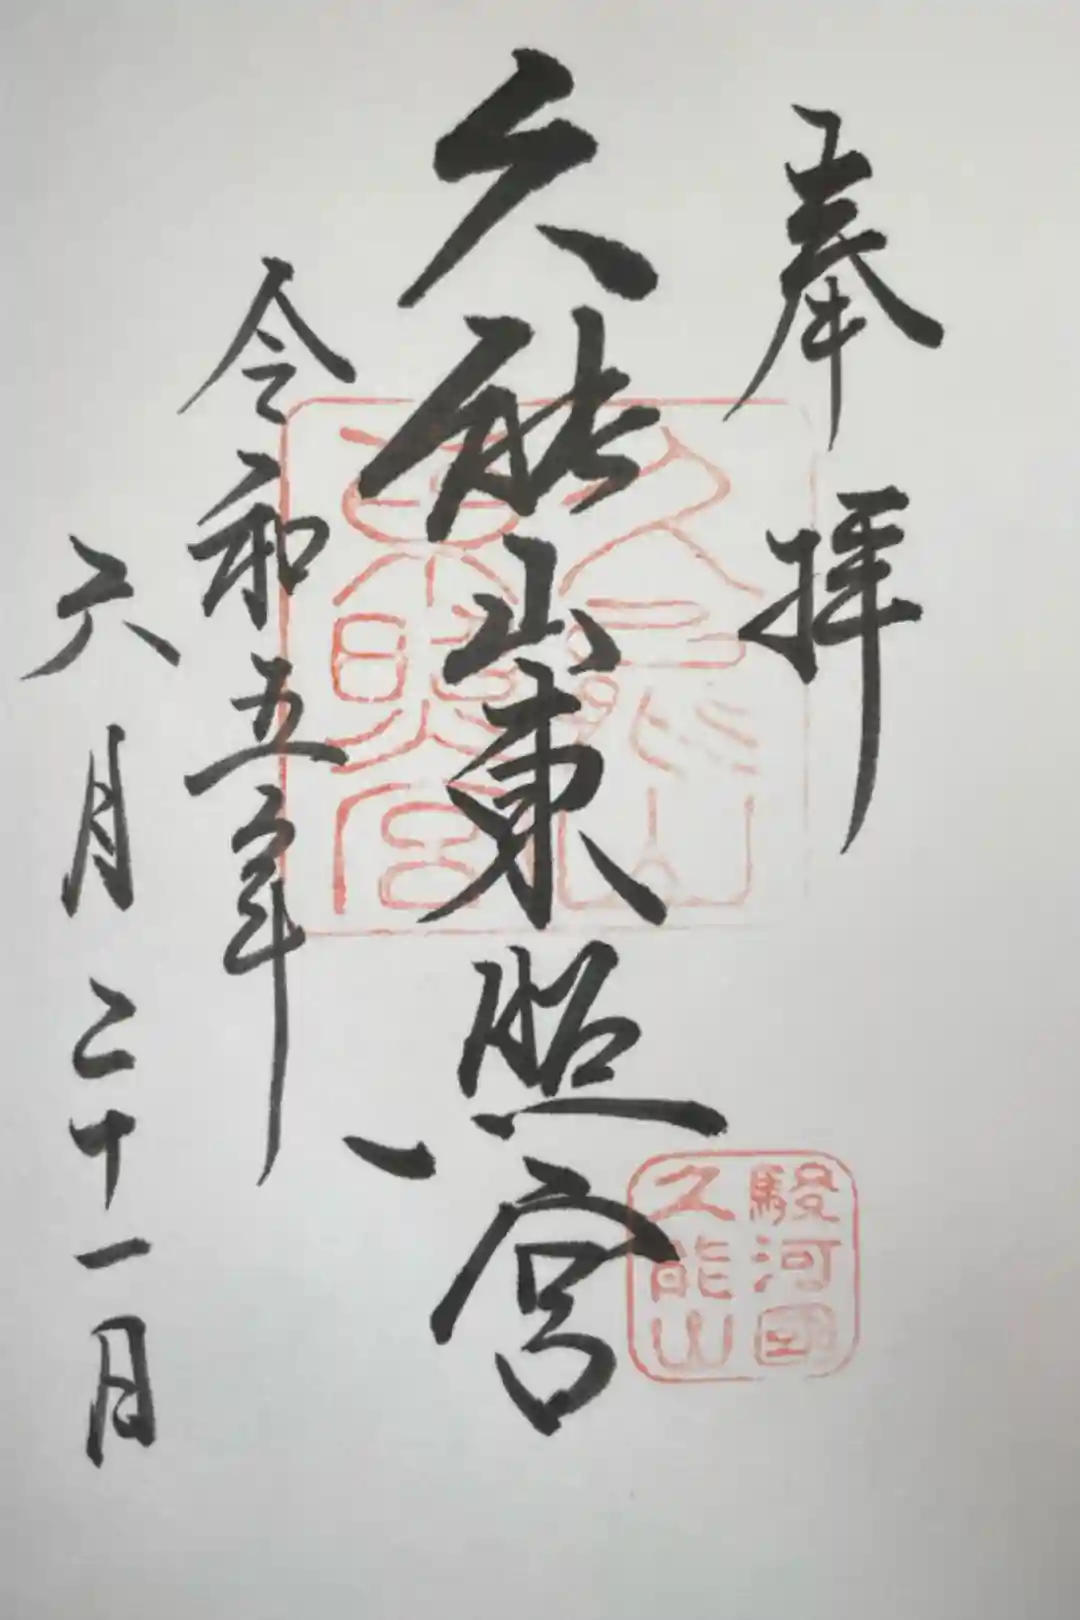 奉拝
久能山東照宮
令和五年
六月二十一日
久能山東照宮
駿河國
久能山